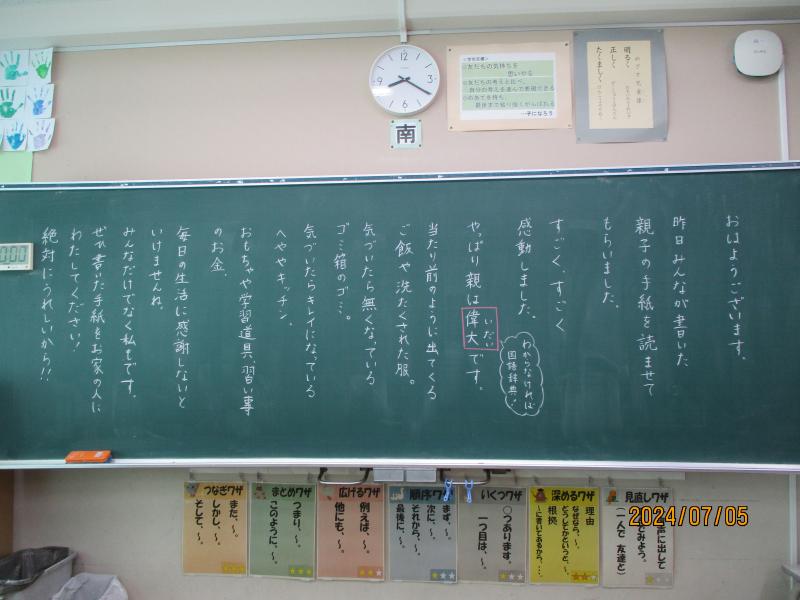 おはようございます。
昨日みんなが書いた
親子の手紙を読ませて
もらいました。
すごく、すごく
感動しました。
やっぱり親は偉大です。
いだい
わからなければ
国語辞典！
当たり前のように出てくる
ご飯や洗たくされた服。
気づいたら無くなっている
ゴミ箱のゴミ…。
気づいたらキレイになっている
へややキッチン。
おもちゃや学習道具、習い事
のお金。
毎日の生活に感謝しないと
いけませんね。
みんなだけでなく私もです。
ぜひ書いた手紙をお家の人に
わたしてください！
絶対にうれしいから!!
12
3
6
9
南
友だちの気持ちを
思いやる
友だちの考えと比べ、
自分の考えを進んで表現できる
めあてを持ち、
最後まで粘り強くがんばれる
…子になろう
明るく
正しく
たくましく
つなぎワザ
また、～。
しかし、～。
そして、～。
まとめワザ
つまり、～。
このように、～。
広げるワザ
例えば、～。
他にも、～。
順序ワザ
まず、～。
次に、～。
それから、～。
最後に、～。
いくつワザ
〇つあります。
一つ目は、～。
深めるワザ
理由
なぜなら、～。
どうしてかというと、～。
根拠
～に書いてあるから、…
見直しワザ
声に出して
(一人で 友達と)
2024/07/05